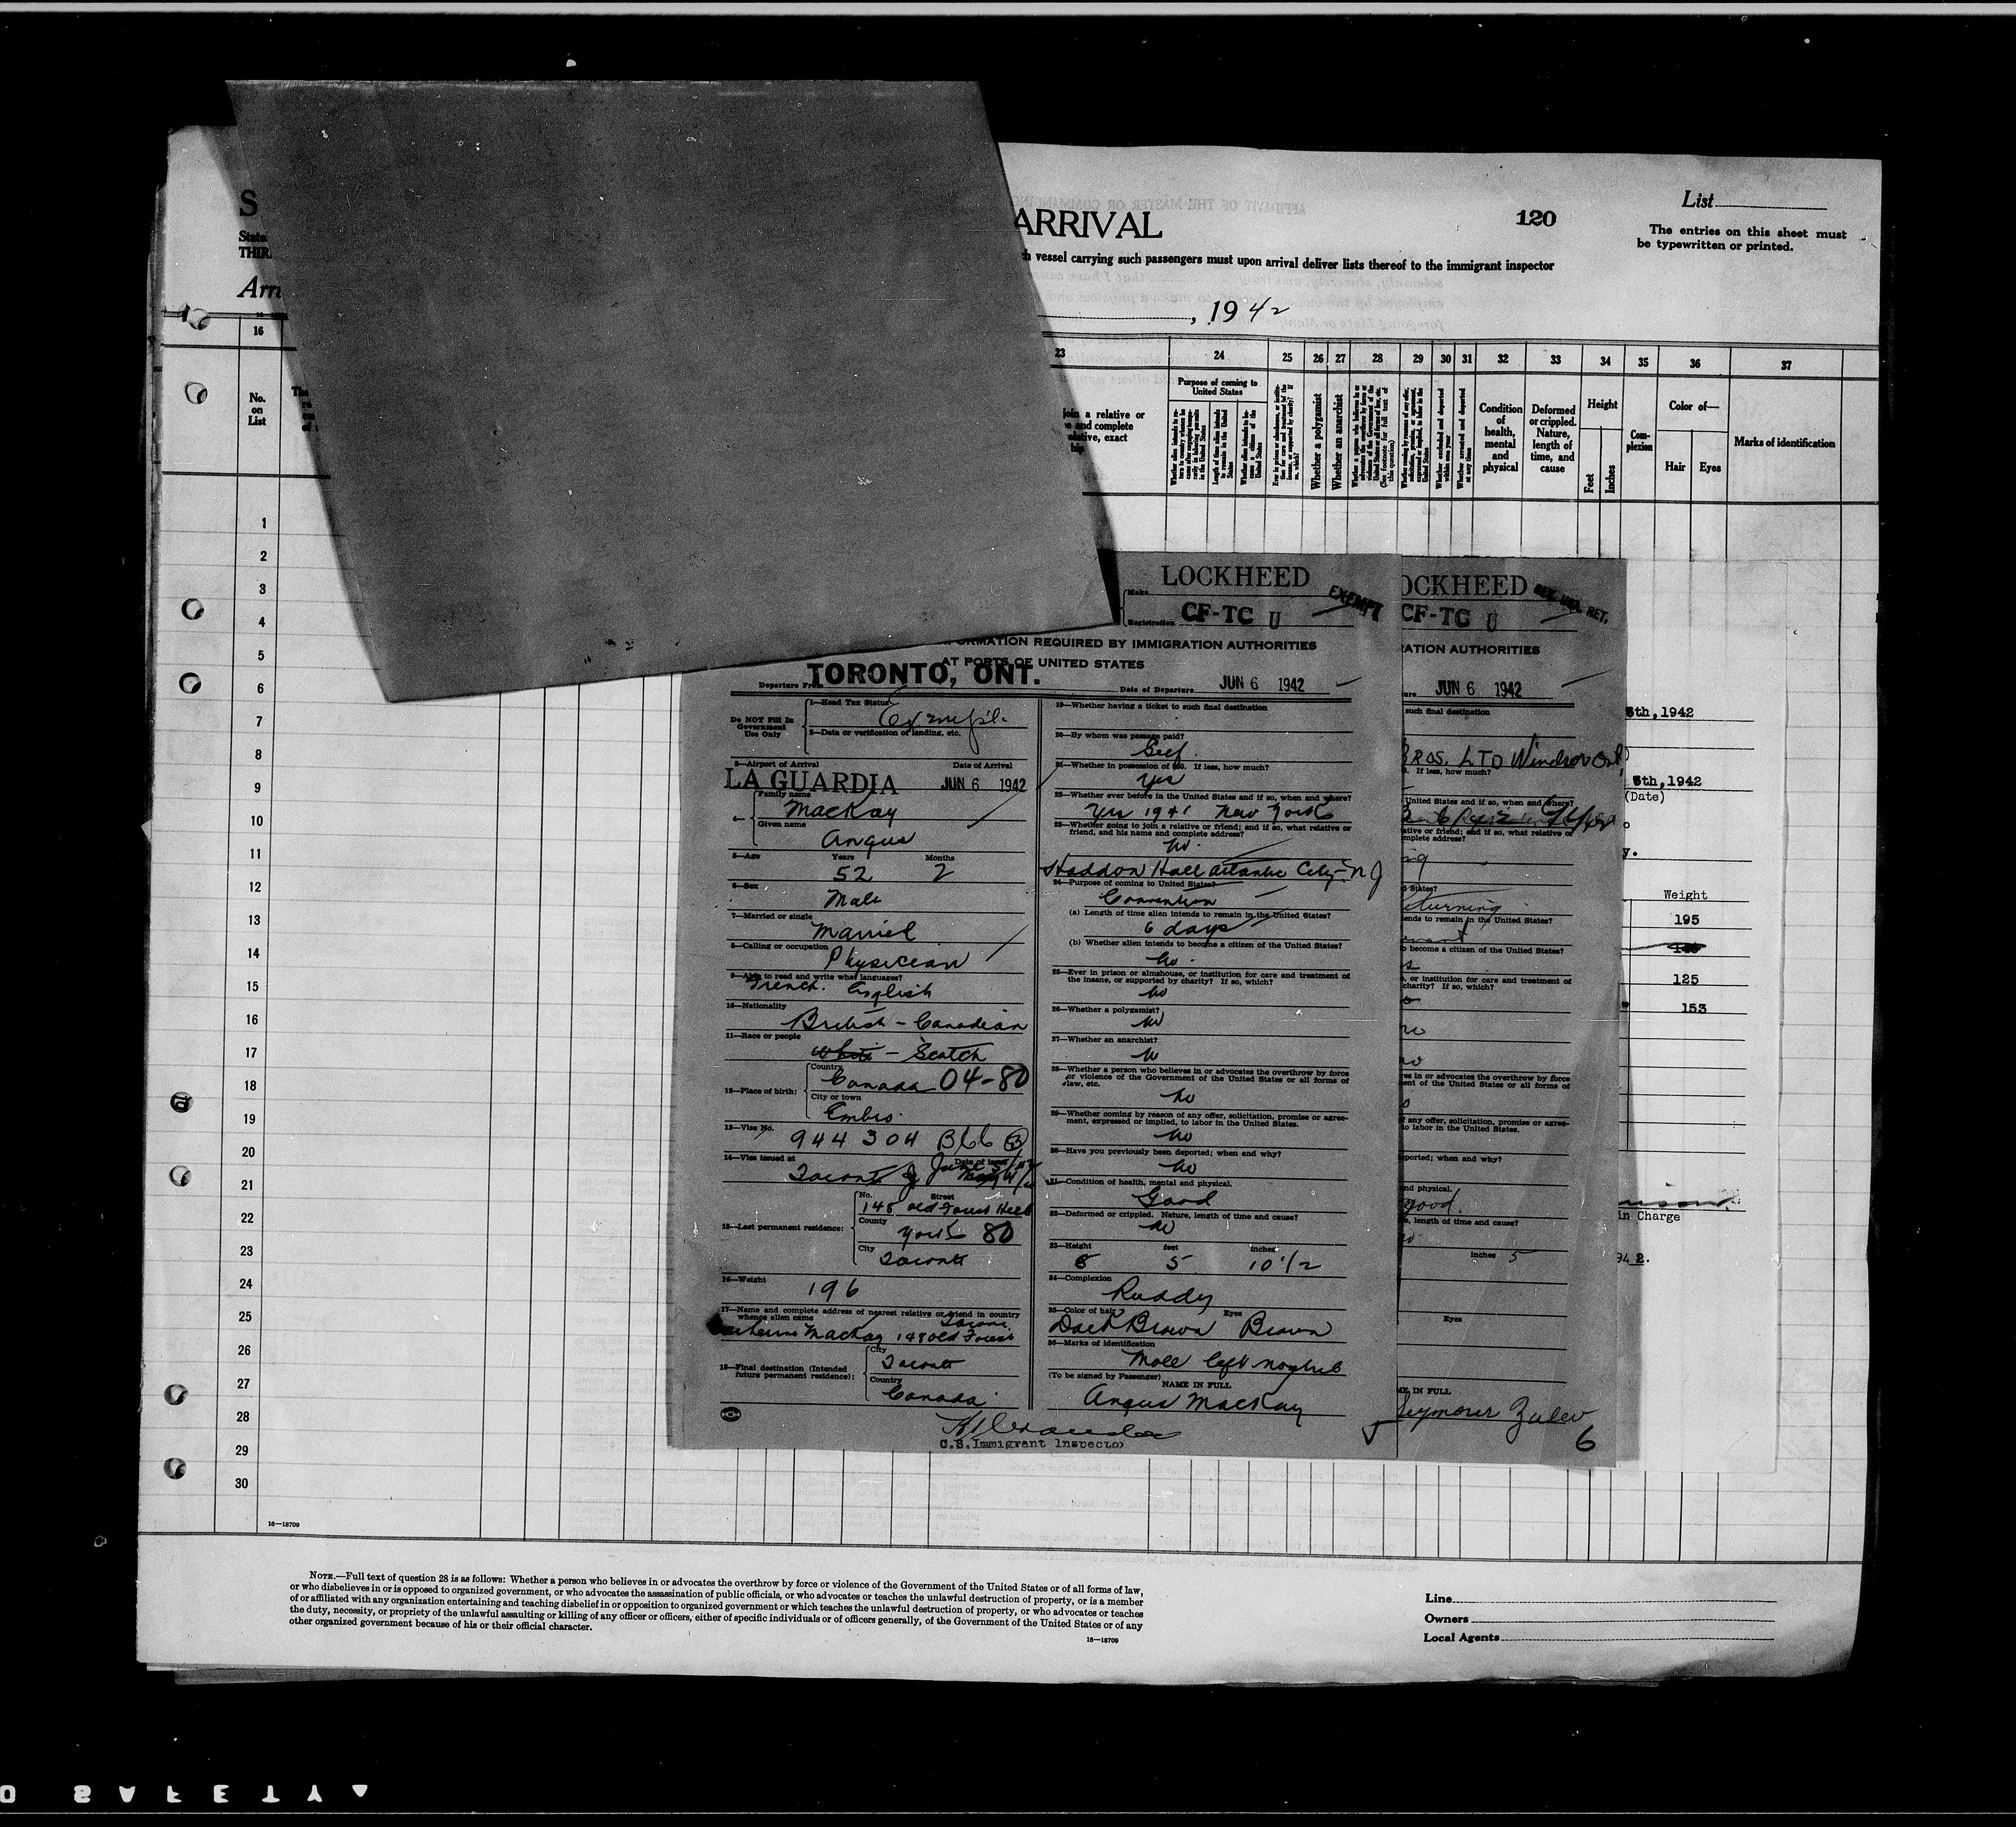 S
ARRIVAL
120
List
The entries on this sheet must
be typewritten or printed.
State
THIR
h vessel carrying such passengers must upon arrival deliver lists thereof to the immigrant inspector
Arri
, 1942
16 23 24 25 26 27 28 29 30 31 32 33 34 35 36 37
No.
on
List
join a relative or
and complete
relative, exact
Purpose of coming to
United States
Whether a polygamist
Whether an anarchist
Condition
of
health,
mental
and
physical
Deformed
or crippled.
Nature,
length of
time, and
cause
Height
Feet
Inches
Com-
plexion
Color of—
Hair
Eyes
Marks of identification
1
2
3
4
5
6
7
8
9
10
11
12
13
14
15
16
17
18
19
20
21
22
23
24
25
26
27
28
29
30
16—18709
LOCKHEED
EXEMPT
Make
CF-TC U
Registration
ORMATION REQUIRED BY IMMIGRATION AUTHORITIES
AT PORTS OF UNITED STATES
TORONTO, ONT.
Departure From
Date of Departure JUN 6 1942
Do NOT Fill In
Government
Use Only
1—Head Tax Status
Exempt.
2—Date or verification of landing, etc.
3—Airport of Arrival Date of Arrival
LA GUARDIA JUN 6 1942
4—
Family name
MacKay
Given name
Angus
5—Age Years Months
52 2
6—Sex
Male
7—Married or single
Married
8—Calling or occupation
Physician
9—Able to read and write what languages?
French. English
10—Nationality
British - Canadian
11—Race or people
White - Scotch
12—Place of birth:
Country
Canada 04-80
City or town
Embro.
13—Visa No.
944304 B66 (3)
14—Visa issued at Date of issue
Toronto
15—Last permanent residence:
No. Street
148 Old Forest Hill
County
York 80
City
Toronto
16—Weight
196
17—Name and complete address of nearest relative or friend in country
whence alien came
MacKay 148 Old Forest
18—Final destination (Intended
future permanent residence):
City
Toronto
Country
Canada
19—Whether having a ticket to such final destination
20—By whom was passage paid?
Self.
21—Whether in possession of $50. If less, how much?
Yes
22—Whether ever before in the United States and if so, when and where?
Yes 1941 New York
23—Whether going to join a relative or friend; and if so, what relative or
friend, and his name and complete address?
No.
Haddon Hall Atlantic City - N J
24—Purpose of coming to United States?
Convention
(a) Length of time alien intends to remain in the United States?
6 days
(b) Whether alien intends to become a citizen of the United States?
No.
25—Ever in prison or almshouse, or institution for care and treatment of
the insane, or supported by charity? If so, which?
No
26—Whether a polygamist?
No
27—Whether an anarchist?
No
28—Whether a person who believes in or advocates the overthrow by force
or violence of the Government of the United States or all forms of
law, etc.
No
29—Whether coming by reason of any offer, solicitation, promise or agree-
ment, expressed or implied, to labor in the United States.
No
30—Have you previously been deported; when and why?
No
31—Condition of health, mental and physical.
Good
32—Deformed or crippled. Nature, length of time and cause?
No
33—Height feet inches
5 10 1/2
34—Complexion
Ruddy
35—Color of hair Eyes
Dark Brown Brown
36—Marks of identification
Mole left nostril
(To be signed by Passenger)
NAME IN FULL
Angus MacKay
U.S. Immigrant Inspector
OCKHEED
CF-TC U
RATION AUTHORITIES
JUN 6 1942
such final destination
BROS. LTD Windsor Ont.
If less, how much?
United States and if so, when and where?
ative or friend; and if so, what relative or
mplete address?
d States?
eturning
ends to remain in the United States?
o become a citizen of the United States?
, or institution for care and treatment of
charity? If so, which?
no
no
ves in or advocates the overthrow by force
ent of the United States or all forms of
f any offer, solicitation, promise or agree-
to labor in the United States.
ported; when and why?
nd physical.
good.
e, length of time and cause?
inches 5
Eyes
ME IN FULL
Seymour Zulev
6
5th, 1942
5th, 1942
(Date)
y.
Weight
195
125
153
in Charge
942.
NOTE.—Full text of question 28 is as follows: Whether a person who believes in or advocates the overthrow by force or violence of the Government of the United States or of all forms of law,
or who disbelieves in or is opposed to organized government, or who advocates the assassination of public officials, or who advocates or teaches the unlawful destruction of property, or is a member
of or affiliated with any organization entertaining and teaching disbelief in or opposition to organized government or which teaches the unlawful destruction of property, or who advocates or teaches
the duty, necessity, or propriety of the unlawful assaulting or killing of any officer or officers, either of specific individuals or of officers generally, of the Government of the United States or of any
other organized government because of his or their official character.
16—18709
Line
Owners
Local Agents
SAFETY